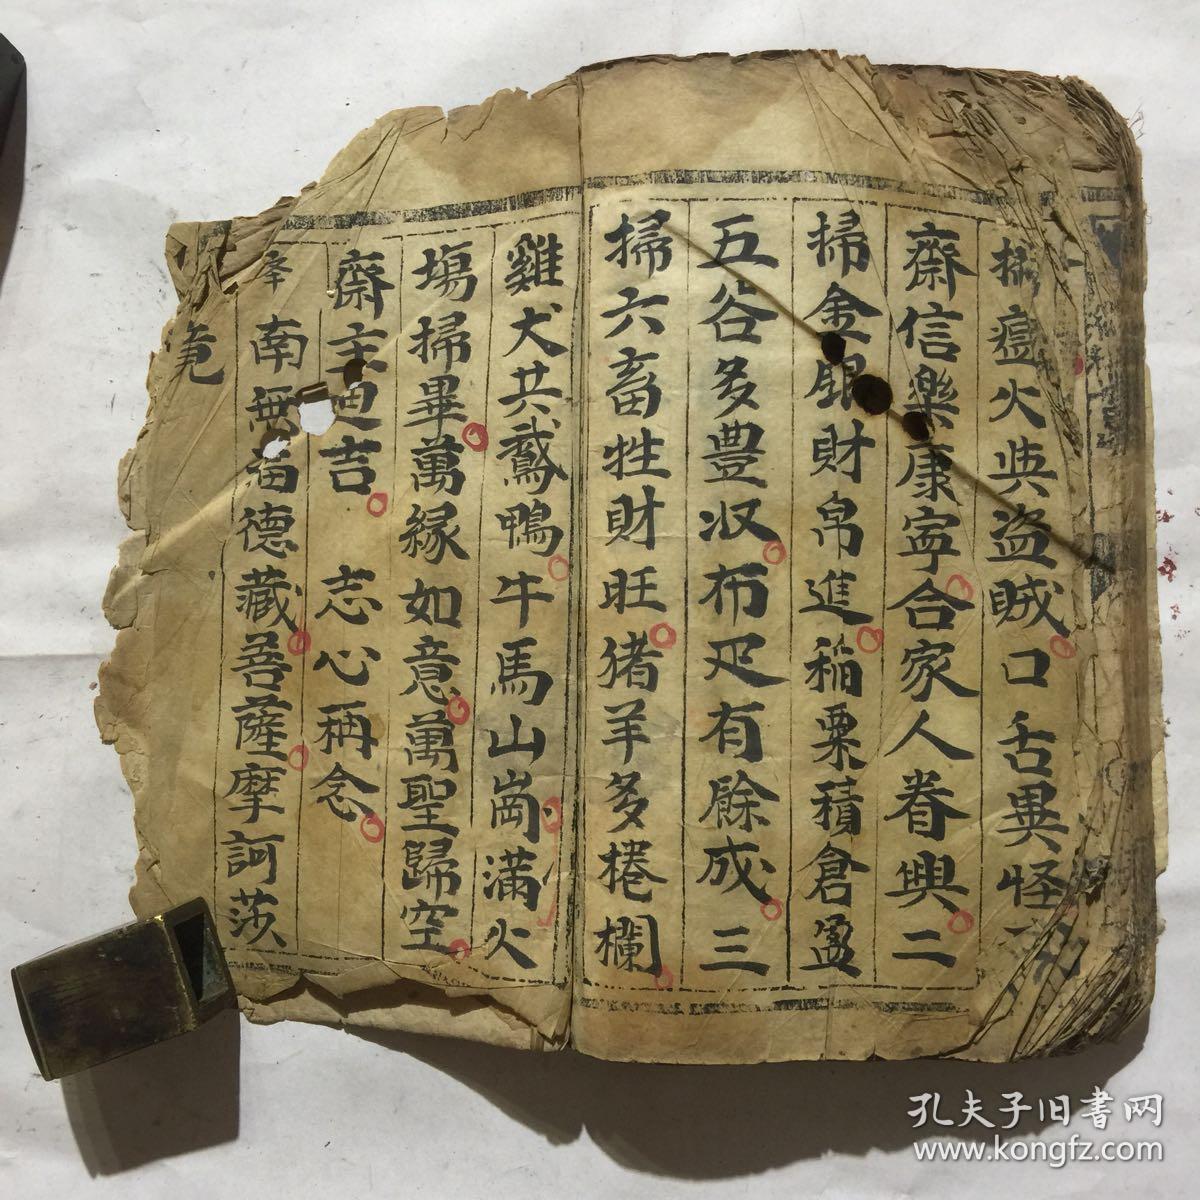 掃瘟火與盗賊口舌異怪
齋信樂康寧合家人眷興二
掃金銀財帛進稲粟積倉盈
五谷多豊収布疋有餘成三
掃六畜牲財旺猪羊多棬欄
雞犬共鵞鴨牛馬山崗滿火
塲掃畢萬緣如意萬聖歸空
齋主迪吉 志心稱念
南無福德藏菩薩摩訶莎
竟
孔夫子旧書网
www.kongfz.com